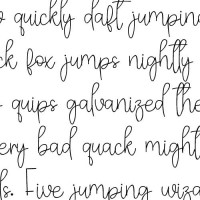 quickly daft jumping
ck fox jumps nightly
quips galvanized the
ery bad quack might
ls. Five jumping wiza